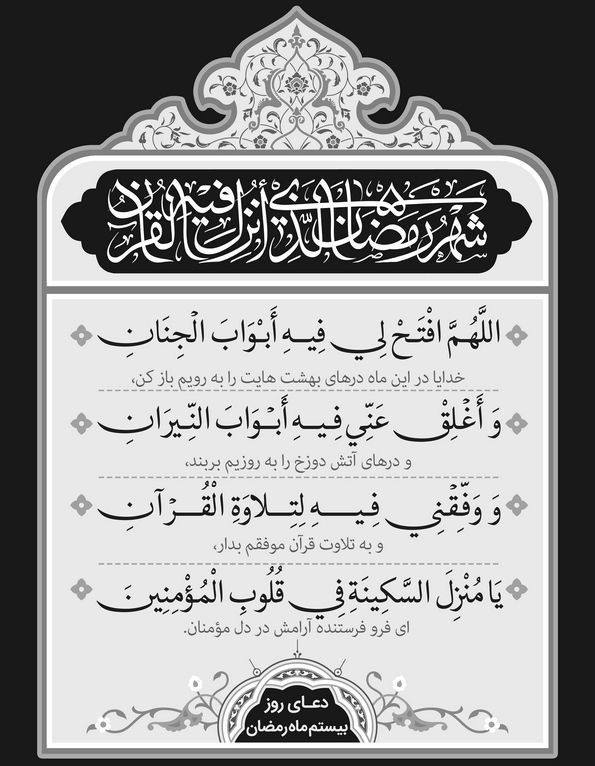 شَهْرُ رَمَضَانَ الَّذِي أُنْزِلَ فِيهِ الْقُرْآنُ
اللَّهُمَّ افْتَحْ لِي فِيهِ أَبْوَابَ الْجِنَانِ
خدایا در این ماه درهای بهشت هایت را به رویم باز کن،
وَ أَغْلِقْ عَنِّي فِيهِ أَبْوَابَ النِّيرَانِ
و درهای آتش دوزخ را به روزیم بربند،
وَ وَفِّقْنِي فِيهِ لِتِلَاوَةِ الْقُرْآنِ
و به تلاوت قرآن موفقم بدار،
يَا مُنْزِلَ السَّكِينَةِ فِي قُلُوبِ الْمُؤْمِنِينَ
ای فرو فرستنده آرامش در دل مؤمنان.
دعای روز
بیستم ماه رمضان